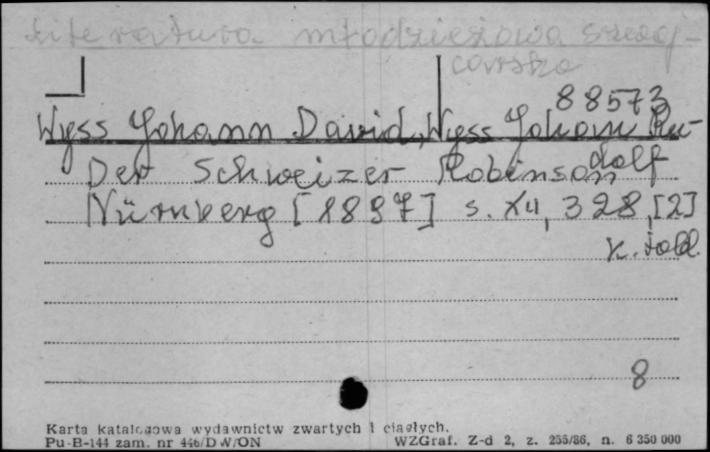 Literatura młodzieżowa szwaj-
carska
88573
Wyss Johann David, Wyss Johann Ru-
dolf
Der Schweizer Robinson
Nürnberg [1897] s. XII, 328, [2]
k. tabl.
8
Karta katalogowa wydawnictw zwartych i ciągłych.
Pu-B-144 zam. nr 446/DW/ON WZGraf. Z-d 2, z. 255/86, n. 6 350 000